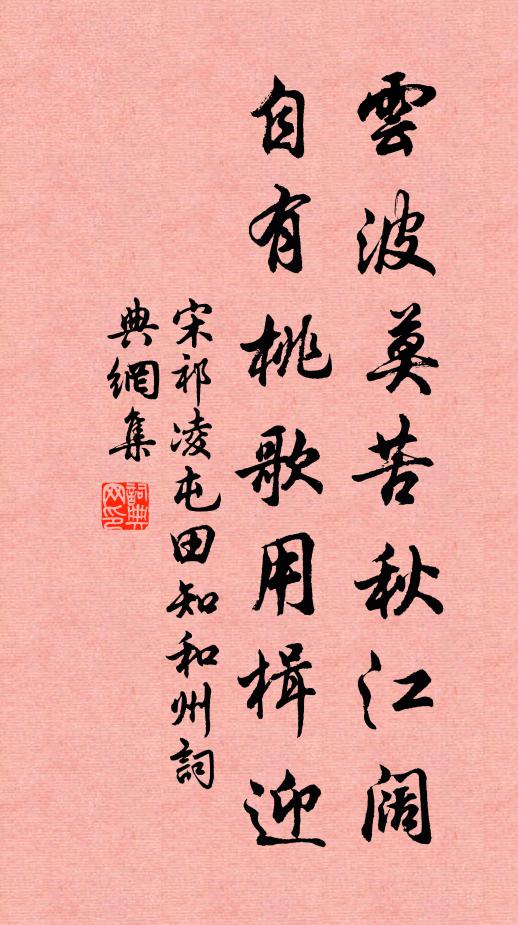 雲波莫苦秋江闊
自有桃歌用楫迎
宋祁凌屯田知和州詞
典網集
詞典
网印